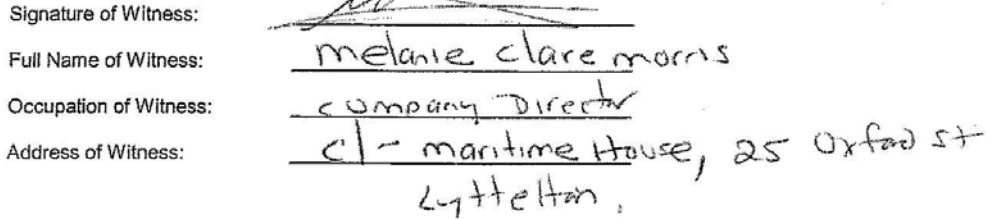 Signature of Witness:
Full Name of Witness: melanie clare morris
Occupation of Witness: company Director
Address of Witness: c/- maritime House, 25 Oxford st
Lyttelton.